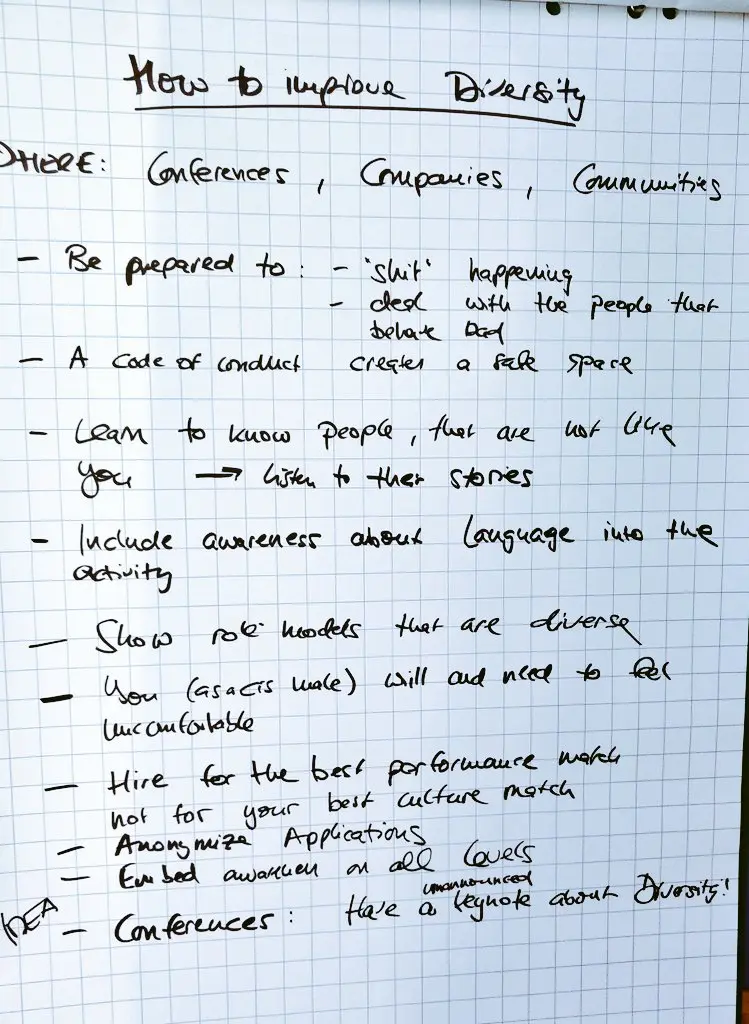 How to improve Diversity
WHERE: Conferences, Companies, Communities
- Be prepared to: - "shit" happening
- deal with the people that
behave bad
- A code of conduct creates a safe space
- Learn to know people, that are not like
you → listen to their stories
- Include awareness about language into the
activity
- Show role models that are diverse
- You (as a cis male) will and need to feel
uncomfortable
- Hire for the best performance match
not for your best culture match
- Anonymize Applications
- Embed awareness on all levels
IDEA - Conferences: Have a unannounced keynote about Diversity!